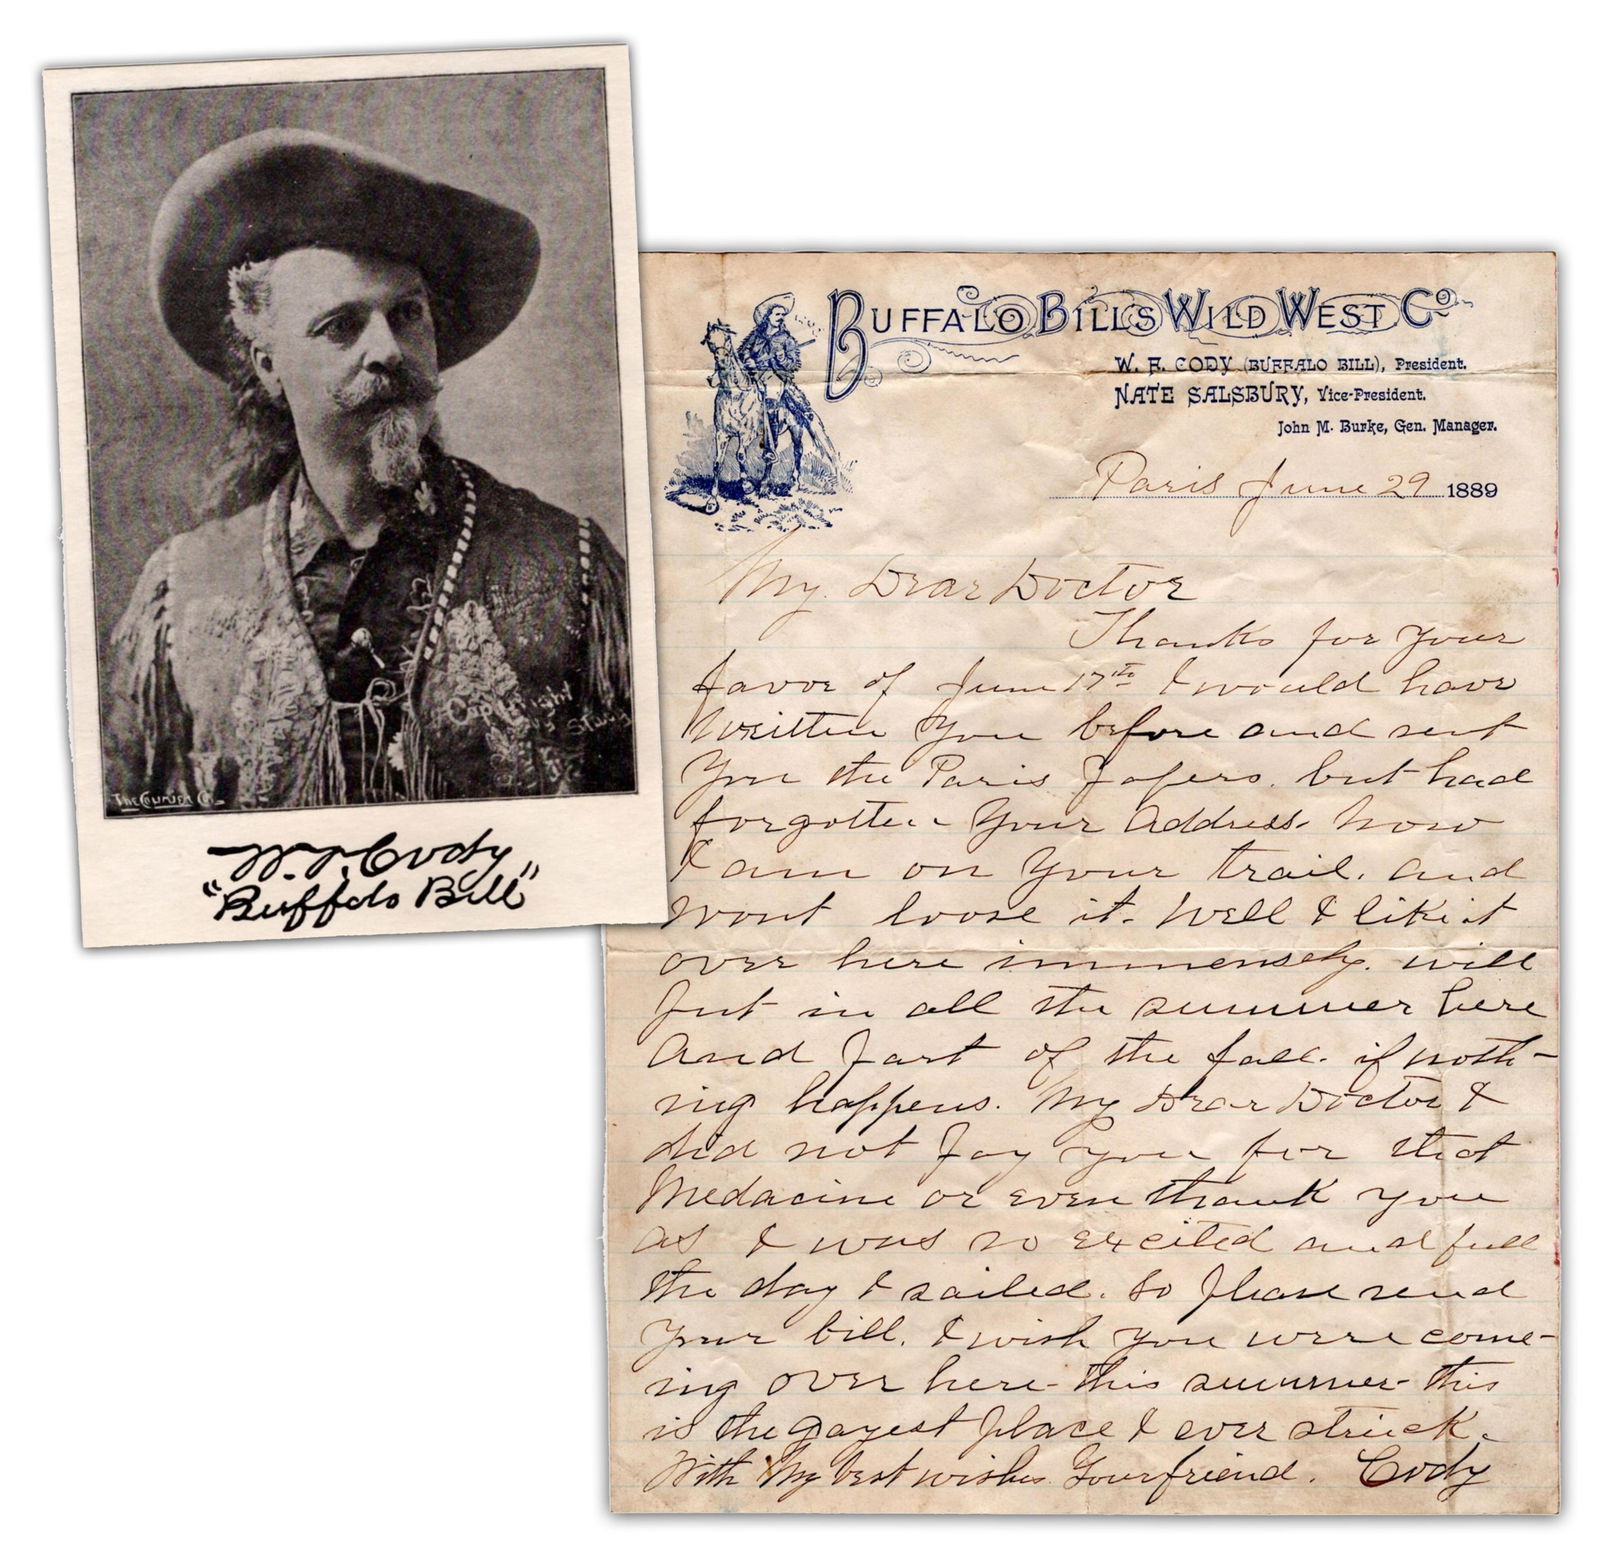 Copyright
by Stacy
THE COURIER CO.
W. F. Cody
"Buffalo Bill"
BUFFALO BILL'S WILD WEST Co
W. F. CODY (BUFFALO BILL), President.
NATE SALSBURY, Vice-President.
John M. Burke, Gen. Manager.
Paris June 29 1889
My Dear Doctor
Thanks for your
favor of June 17th I would have
written you before and sent
you the Paris papers. but had
forgotten your address. now
I am on your trail. and
wont loose it. Well I like it
over here immensely. will
put in all the summer here
and part of the fall. if noth-
ing happens. My Dear Doctor I
did not pay you for that
Medacine or even thank you
as I was so excited and full
the day I sailed. So please send
your bill. I wish you were come-
ing over here- this summer- this
is the gayest place I ever struck.
With My best wishes Your friend. Cody